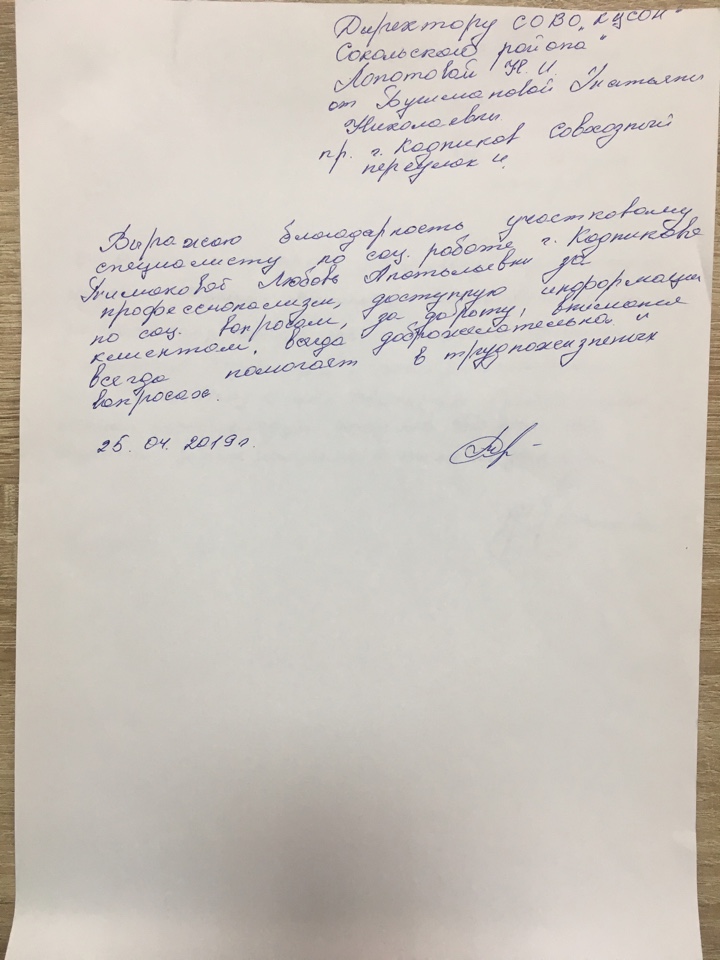 Директору СОВО „КЦСОН"
Сокольского района"
Лопотовой Н. И.
от Бушмановой Татьяны
Николаевны
пр. г. Кадников Совхозный
переулок
Выражаю благодарность участковому
специалисту по соц. работе г. Кадникова
Тимаковой Любовь Анатольевны за
профессионализм, доступную информации
по соц. вопросам, за доброту, внимания
клиентам, всегда доброжелательна и
всегда помогает в трудножизненых
вопросах.
25. 04. 2019г.